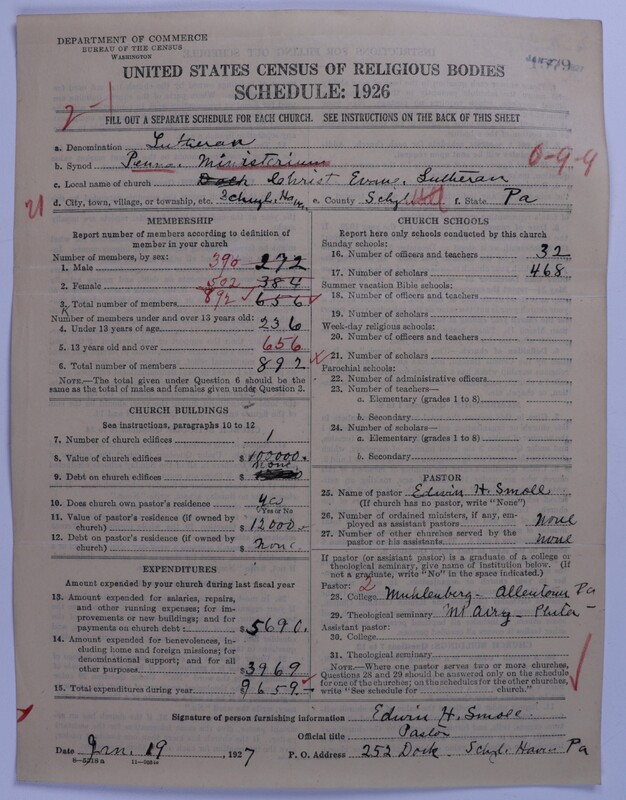 DEPARTMENT OF COMMERCE
BUREAU OF THE CENSUS
WASHINGTON
UNITED STATES CENSUS OF RELIGIOUS BODIES
SCHEDULE: 1926
2-1
FILL OUT A SEPARATE SCHEDULE FOR EACH CHURCH. SEE INSTRUCTIONS ON THE BACK OF THIS SHEET
a. Denomination Lutheran
b. Synod Penna. Ministerium 6-9-9
c. Local name of church Christ Evang. Lutheran
d. City, town, village, or township, etc. Schuyl. Haven e. County Schyl f. State Pa
MEMBERSHIP
Report number of members according to definition of member in your church
Number of members, by sex:
1. Male 390 272
2. Female 502 384
3. Total number of members 892 656
Number of members under and over 13 years old:
4. Under 13 years of age 236
5. 13 years old and over 656
6. Total number of members 892
NOTE.—The total given under Question 6 should be the same as the total of males and females given under Question 3.
CHURCH BUILDINGS
See instructions, paragraphs 10 to 12
7. Number of church edifices 1
8. Value of church edifices $100000.
9. Debt on church edifices $ none
10. Does church own pastor's residence yes
Yes or No
11. Value of pastor's residence (if owned by church) $12000.
12. Debt on pastor's residence (if owned by church) $ none
EXPENDITURES
Amount expended by your church during last fiscal year
13. Amount expended for salaries, repairs, and other running expenses; for improvements or new buildings; and for payments on church debt: $5690.
14. Amount expended for benevolences, including home and foreign missions; for denominational support; and for all other purposes $3969
15. Total expenditures during year $9659.
CHURCH SCHOOLS
Report here only schools conducted by this church
Sunday schools:
16. Number of officers and teachers 32
17. Number of scholars 468
Summer vacation Bible schools:
18. Number of officers and teachers
19. Number of scholars
Week-day religious schools:
20. Number of officers and teachers
21. Number of scholars
Parochial schools:
22. Number of administrative officers
23. Number of teachers—
a. Elementary (grades 1 to 8)
b. Secondary
24. Number of scholars—
a. Elementary (grades 1 to 8)
b. Secondary
PASTOR
25. Name of pastor Edwin H. Smoll
(If church has no pastor, write "None")
26. Number of ordained ministers, if any, employed as assistant pastors None
27. Number of other churches served by the pastor or his assistants None
If pastor (or assistant pastor) is a graduate of a college or theological seminary, give name of institution below. (If not a graduate, write "No" in the space indicated.)
Pastor: 2
28. College Muhlenberg - Allentown Pa
29. Theological seminary Mt Airy - Phila -
Assistant pastor:
30. College
31. Theological seminary
NOTE.—Where one pastor serves two or more churches, Questions 28 and 29 should be answered only on the schedule for one of the churches; on the schedules for the other churches, write "See schedule for church."
Signature of person furnishing information Edwin H. Smoll
Official title Pastor
Date Jan. 19 1927 P. O. Address 252 Dock Schyl. Haven Pa